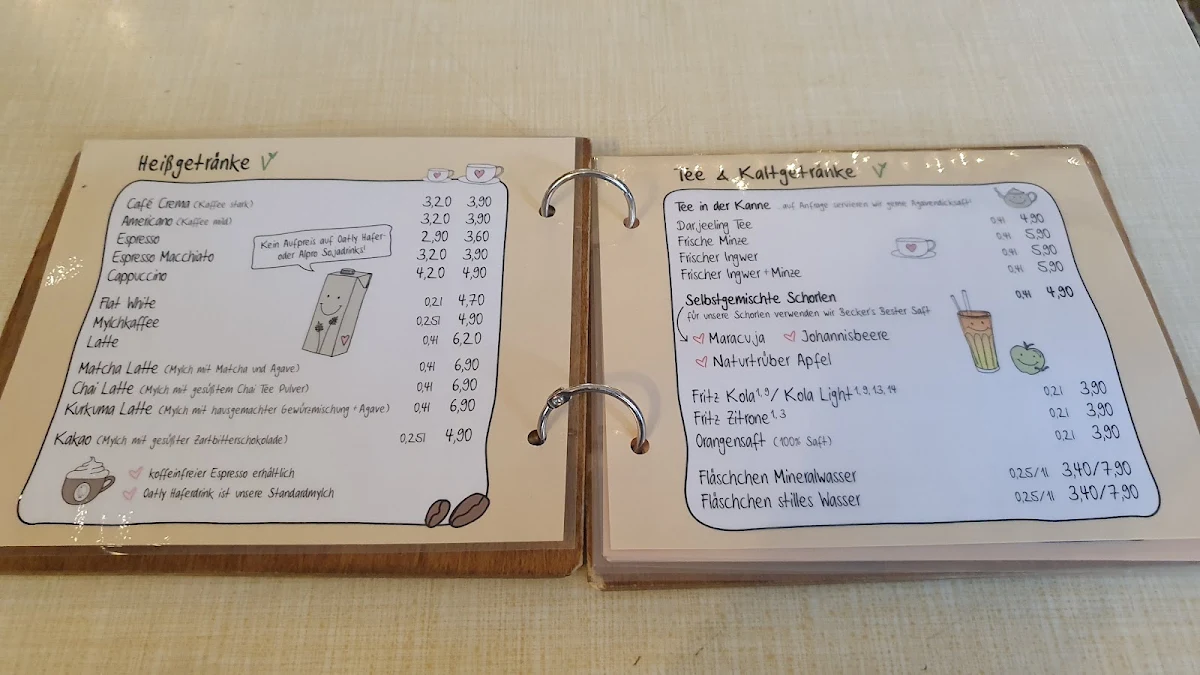 Heißgetränke
Café Crema (Kaffee stark) 3,20 3,90
Americano (Kaffee mild) 3,20 3,90
Espresso 2,90 3,60
Espresso Macchiato 3,20 3,90
Cappuccino 4,20 4,90
Kein Aufpreis auf Oatly Hafer-
oder Alpro Sojadrinks!
Flat White 0,2l 4,70
Mylchkaffee 0,25l 4,90
Latte 0,4l 6,20
Matcha Latte (Mylch mit Matcha und Agave) 0,4l 6,90
Chai Latte (Mylch mit gesüßtem Chai Tee Pulver) 0,4l 6,90
Kurkuma Latte (Mylch mit hausgemachter Gewürzmischung + Agave) 0,4l 6,90
Kakao (Mylch mit gesüßter Zartbitterschokolade) 0,25l 4,90
koffeinfreier Espresso erhältlich
Oatly Haferdrink ist unsere Standardmylch
Tee & Kaltgetränke
Tee in der Kanne ...auf Anfrage servieren wir gerne Agavendicksaft!
Darjeeling Tee 0,4l 4,90
Frische Minze 0,4l 5,90
Frischer Ingwer 0,4l 5,90
Frischer Ingwer + Minze 0,4l 5,90
Selbstgemischte Schorlen 0,4l 4,90
für unsere Schorlen verwenden wir Becker's Bester Saft
Maracuja Johannisbeere
Naturtrüber Apfel
Fritz Kola 1,9 / Kola Light 1, 9, 13, 14 0,2l 3,90
Fritz Zitrone 1, 3 0,2l 3,90
Orangensaft (100% Saft) 0,2l 3,90
Fläschchen Mineralwasser 0,25/1l 3,40/7,90
Fläschchen stilles Wasser 0,25/1l 3,40/7,90